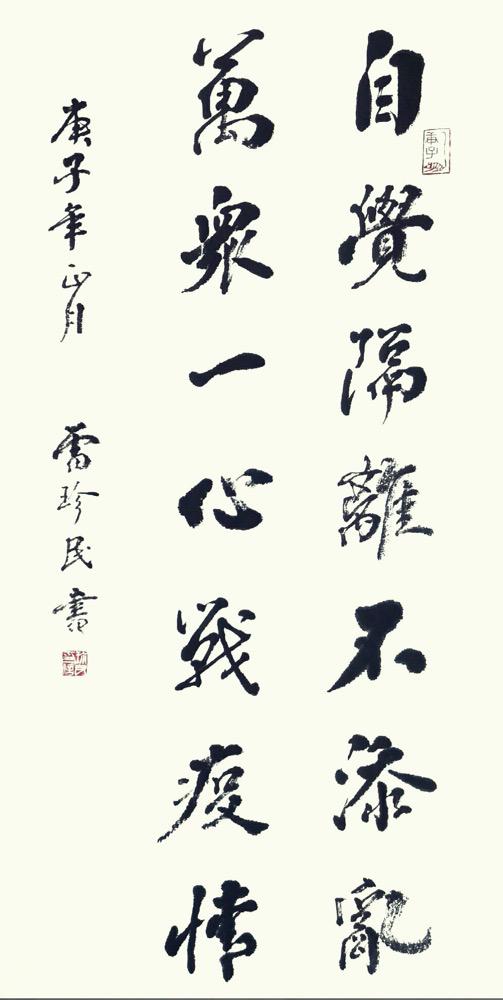 自覺隔離不添亂
萬衆一心戰疫情
庚子年正月 雷珍民書